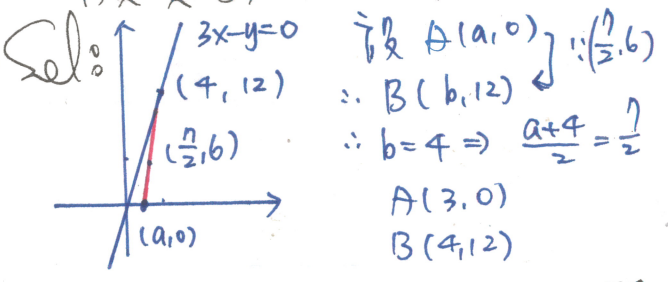 Sol:
3x-y=0
(4, 12)
(7/2, 6)
(a, 0)
設 A(a, 0) ∵(7/2, 6)
∴ B(b, 12)
∴ b=4 ⇒ (a+4)/2 = 7/2
A(3, 0)
B(4, 12)